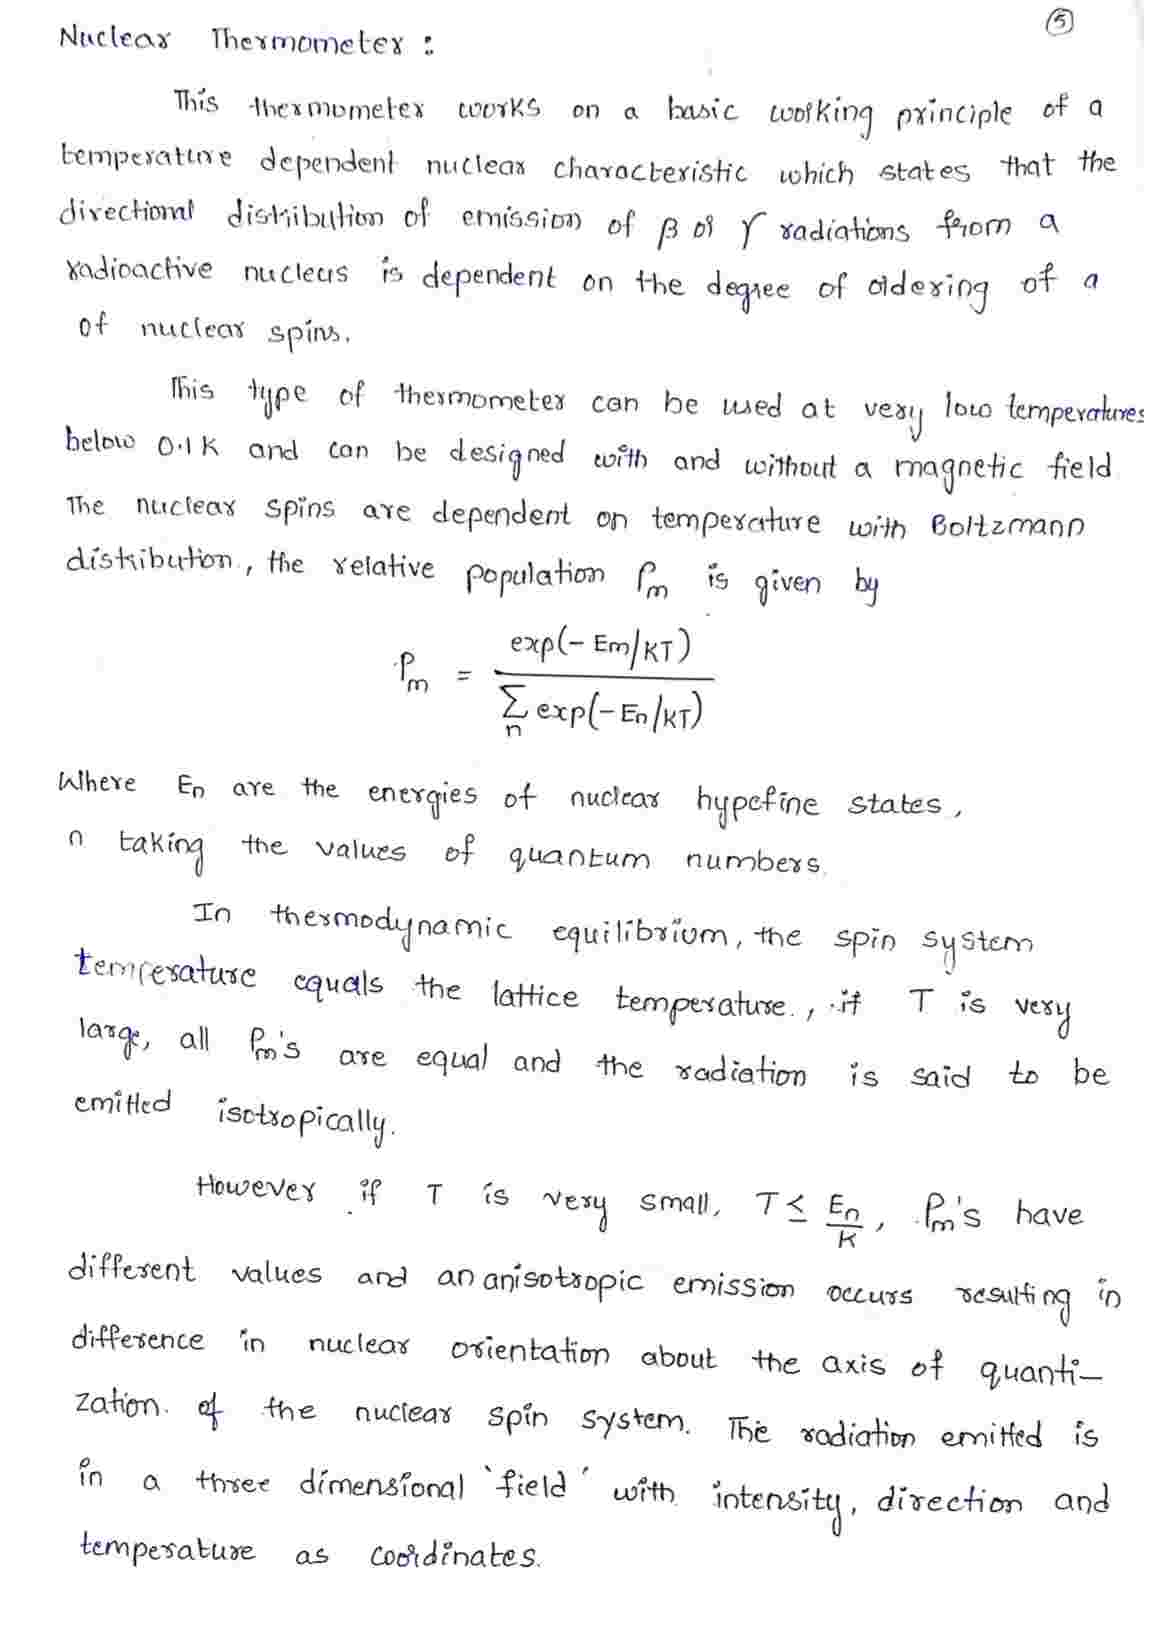 5
Nuclear Thermometer :
This thermometer works on a basic working principle of a
temperature dependent nuclear characteristic which states that the
directional distribution of emission of β or γ radiations from a
radioactive nucleus is dependent on the degree of ordering of a
of nuclear spins.
This type of thermometer can be used at very low temperatures
below 0.1 K and can be designed with and without a magnetic field
The nuclear spins are dependent on temperature with Boltzmann
distribution, the relative population Pm is given by
Pm = exp(- Em/KT) / Σn exp(- En/KT)
Where En are the energies of nuclear hypefine states,
n taking the values of quantum numbers.
In thermodynamic equilibrium, the spin system
temperature equals the lattice temperature., if T is very
large, all Pm's are equal and the radiation is said to be
emitted isotropically.
However if T is very small, T ≤ En/K, Pm's have
different values and an anisotropic emission occurs resulting in
difference in nuclear orientation about the axis of quanti-
zation. of the nuclear spin system. The radiation emitted is
in a three dimensional 'field' with intensity, direction and
temperature as coordinates.